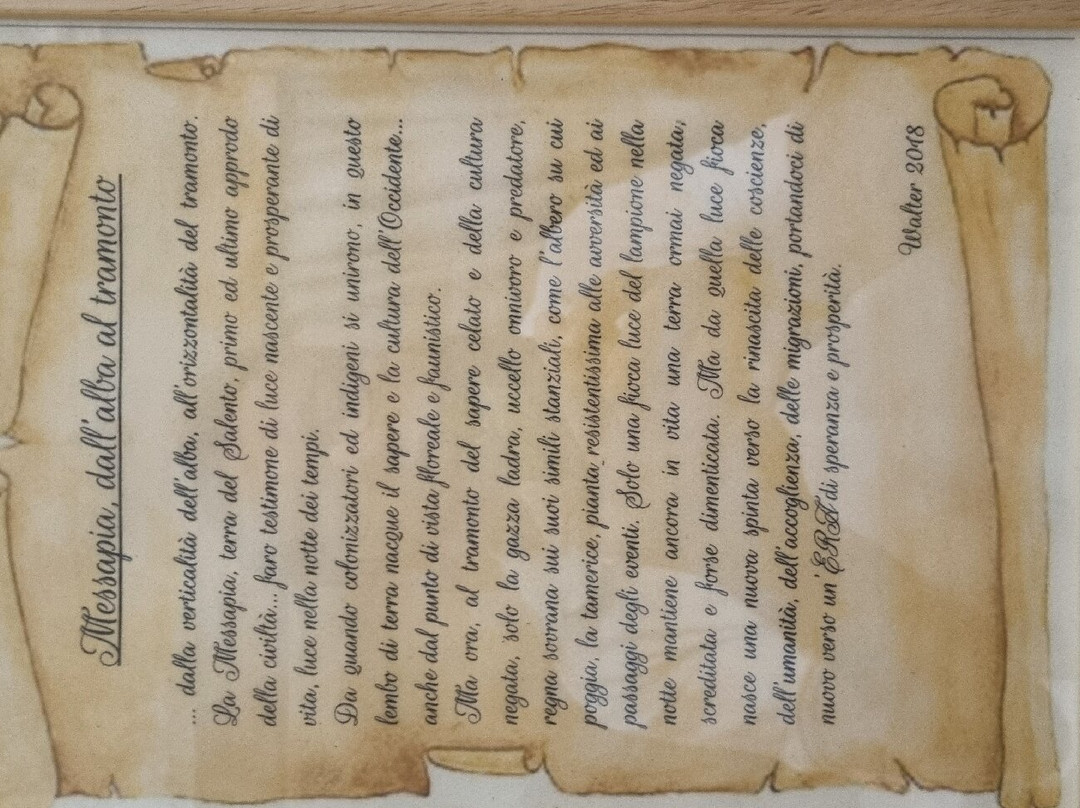 Messapia, dall'alba al tramonto
... dalla verticalità dell'alba, all'orizzontalità del tramonto.
La Messapia, terra del Salento, primo ed ultimo approdo
della civiltà... faro testimone di luce nascente e prosperante di
vita, luce nella notte dei tempi.
Da quando colonizzatori ed indigeni si unirono, in questo
lembo di terra nacque il sapere e la cultura dell'Occidente...
anche dal punto di vista floreale e faunistico.
Ma ora, al tramonto del sapere celato e della cultura
negata, solo la gazza ladra, uccello onnivoro e predatore,
regna sovrana sui suoi simili stanziali, come l'albero su cui
poggia, la tamerice, pianta resistentissima alle avversità ed ai
passaggi degli eventi. Solo una fioca luce del lampione nella
notte mantiene ancora in vita una terra ormai negata,
screditata e forse dimenticata. Ma da quella luce fioca
nasce una nuova spinta verso la rinascita delle coscienze,
dell'umanità, dell'accoglienza, delle migrazioni, portandoci di
nuovo verso un'ERA di speranza e prosperità.
Walter 2018